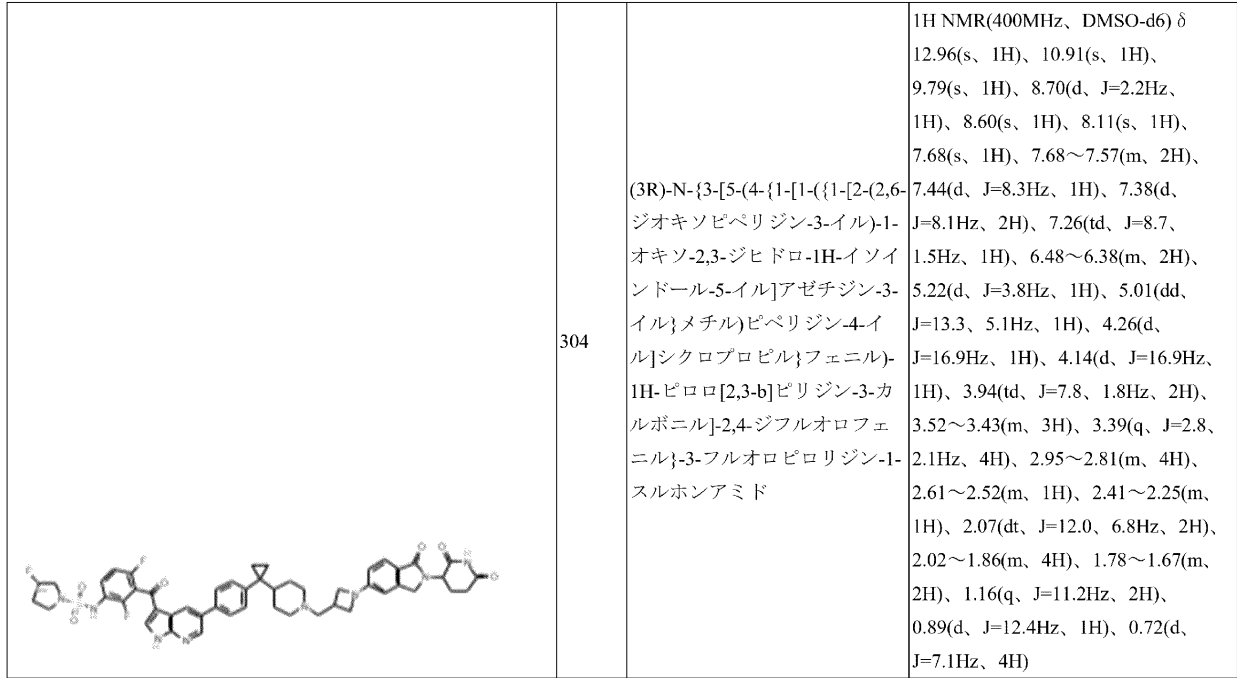 304
(3R)-N-{3-[5-(4-{1-[1-({1-[2-(2,6-
ジオキソピペリジン-3-イル)-1-
オキソ-2,3-ジヒドロ-1H-イソイ
ンドール-5-イル]アゼチジン-3-
イル}メチル)ピペリジン-4-イ
ル]シクロプロピル}フェニル)-
1H-ピロロ[2,3-b]ピリジン-3-カ
ルボニル]-2,4-ジフルオロフェ
ニル}-3-フルオロピロリジン-1-
スルホンアミド
1H NMR(400MHz、DMSO-d6) δ
12.96(s、1H)、10.91(s、1H)、
9.79(s、1H)、8.70(d、J=2.2Hz、
1H)、8.60(s、1H)、8.11(s、1H)、
7.68(s、1H)、7.68～7.57(m、2H)、
7.44(d、J=8.3Hz、1H)、7.38(d、
J=8.1Hz、2H)、7.26(td、J=8.7、
1.5Hz、1H)、6.48～6.38(m、2H)、
5.22(d、J=3.8Hz、1H)、5.01(dd、
J=13.3、5.1Hz、1H)、4.26(d、
J=16.9Hz、1H)、4.14(d、J=16.9Hz、
1H)、3.94(td、J=7.8、1.8Hz、2H)、
3.52～3.43(m、3H)、3.39(q、J=2.8、
2.1Hz、4H)、2.95～2.81(m、4H)、
2.61～2.52(m、1H)、2.41～2.25(m、
1H)、2.07(dt、J=12.0、6.8Hz、2H)、
2.02～1.86(m、4H)、1.78～1.67(m、
2H)、1.16(q、J=11.2Hz、2H)、
0.89(d、J=12.4Hz、1H)、0.72(d、
J=7.1Hz、4H)